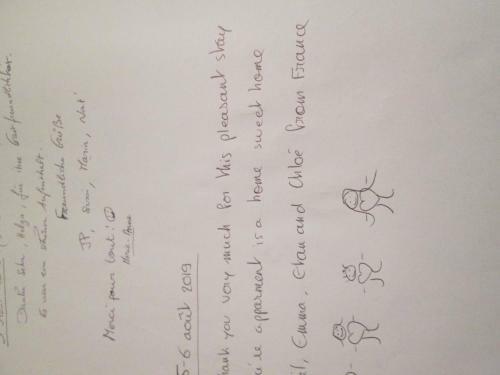 Danke sehr, Helga, für ihre Gastfreundlichkeit.
Es war ein schöner Aufenthalt.
Freundliche Grüße
JP,
Merci pour tout!
5-6 août 2019
hank you very much for this pleasant stay
apparment is a home sweet home
Emma, Etan and Chloé from France